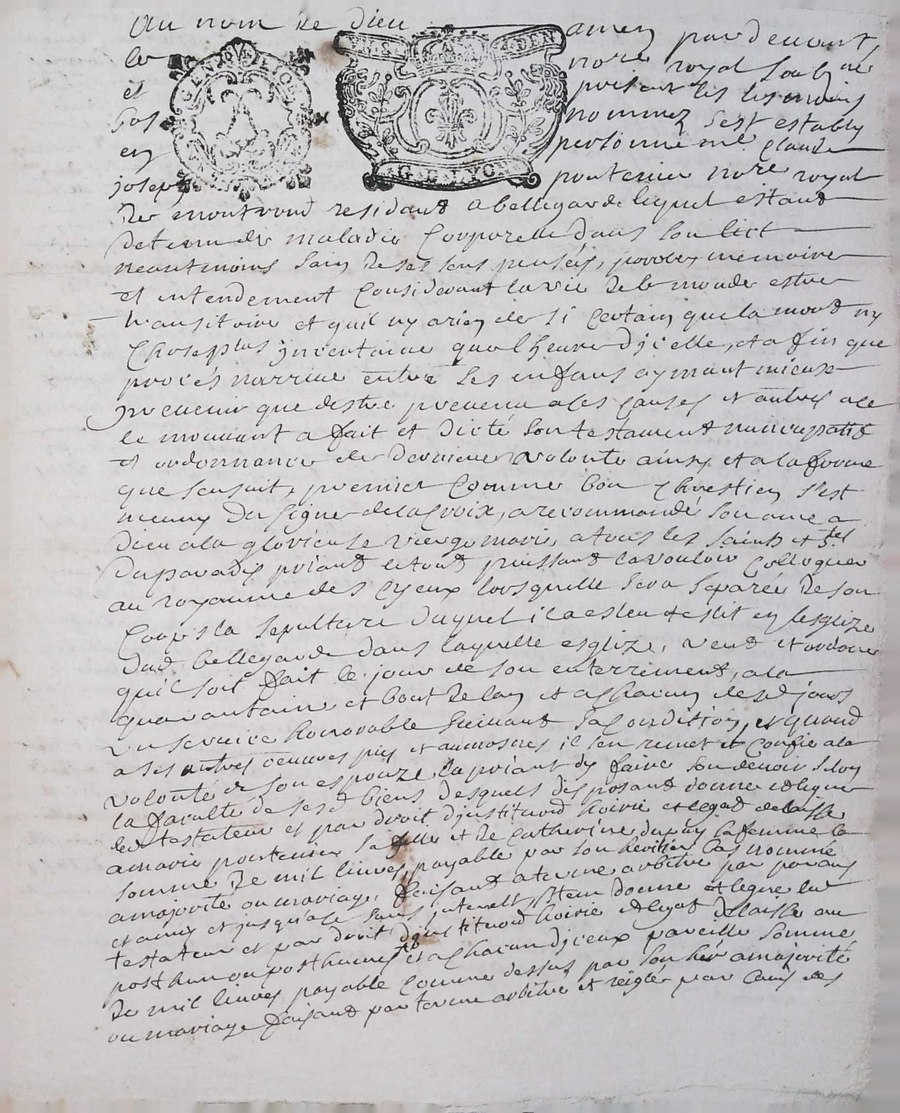 Au nom de Dieu amen pardevant
le nore royal soubzné
et présent les tesmoins
bas nommez s'est estably
en personne me Claude
joseph pontenier nore royal
de montrond residant a bellegarde lequel estant
detenu de maladie corporelle dans son lict
neantmoins sain de ses sens pensées, parolle, memoire
et entendement considerant la vie de le monde estre
transitoire et quil ny a rien de si certain que la mort ny
chose plus jncertaine que l'heure djcelle, et afin que
procés narrive entre ses enfans aymant mieux
prevenir que destre prevenu a ces causes et autres a ce
le mouvant a fait et dicté son testament nuncupatif
et ordonnance de derniere volonte ainsy et a la forme
que sensuit, premier comme bon chrestien s'est
muny du signe de la croix, a recommandé son ame a
Dieu a la glorieuse vierge marie a tous les saints et stes
du paradis priant le tout puissant la vouloir colloquer
au royaume des cjeux lorsquelle sera separée de son
corps la sepulture duquel il a esleu et eslit en lesglize
dud bellegarde dans laquelle esglize, veut et ordonne
quil soit fait le jour de son enterrement, a la
quarantaine et bout de lan et a chacun desd jours
un service honnorable suivant sa condition, et quand
a ses autres oeuvres pies et aumosnes il sen remet et confie a la
volonté de son espouze la priant dy faire son devoir selon
la faculté de sesd biens desquels disposant donne et legue
led testateur et par droit djnstitution hoirie et legat delaisse
a marie pontenier sa fille et de Catherine dupuy sa femme la
somme de mil livres payable par son heritier bas nommé
a majorité ou mariage, faisant a terme arbitre par parans
et amis et jusqu'a ce sans interests, Item donne et legue led
testateur et par droit djnstitution hoirie et legat delaisse au
posthume ou posthumes et a chacun djceux pareille somme
De mil livres payable comme dessus par son her a majorité
ou mariage faisant par terme arbitre et réglé par lavis des